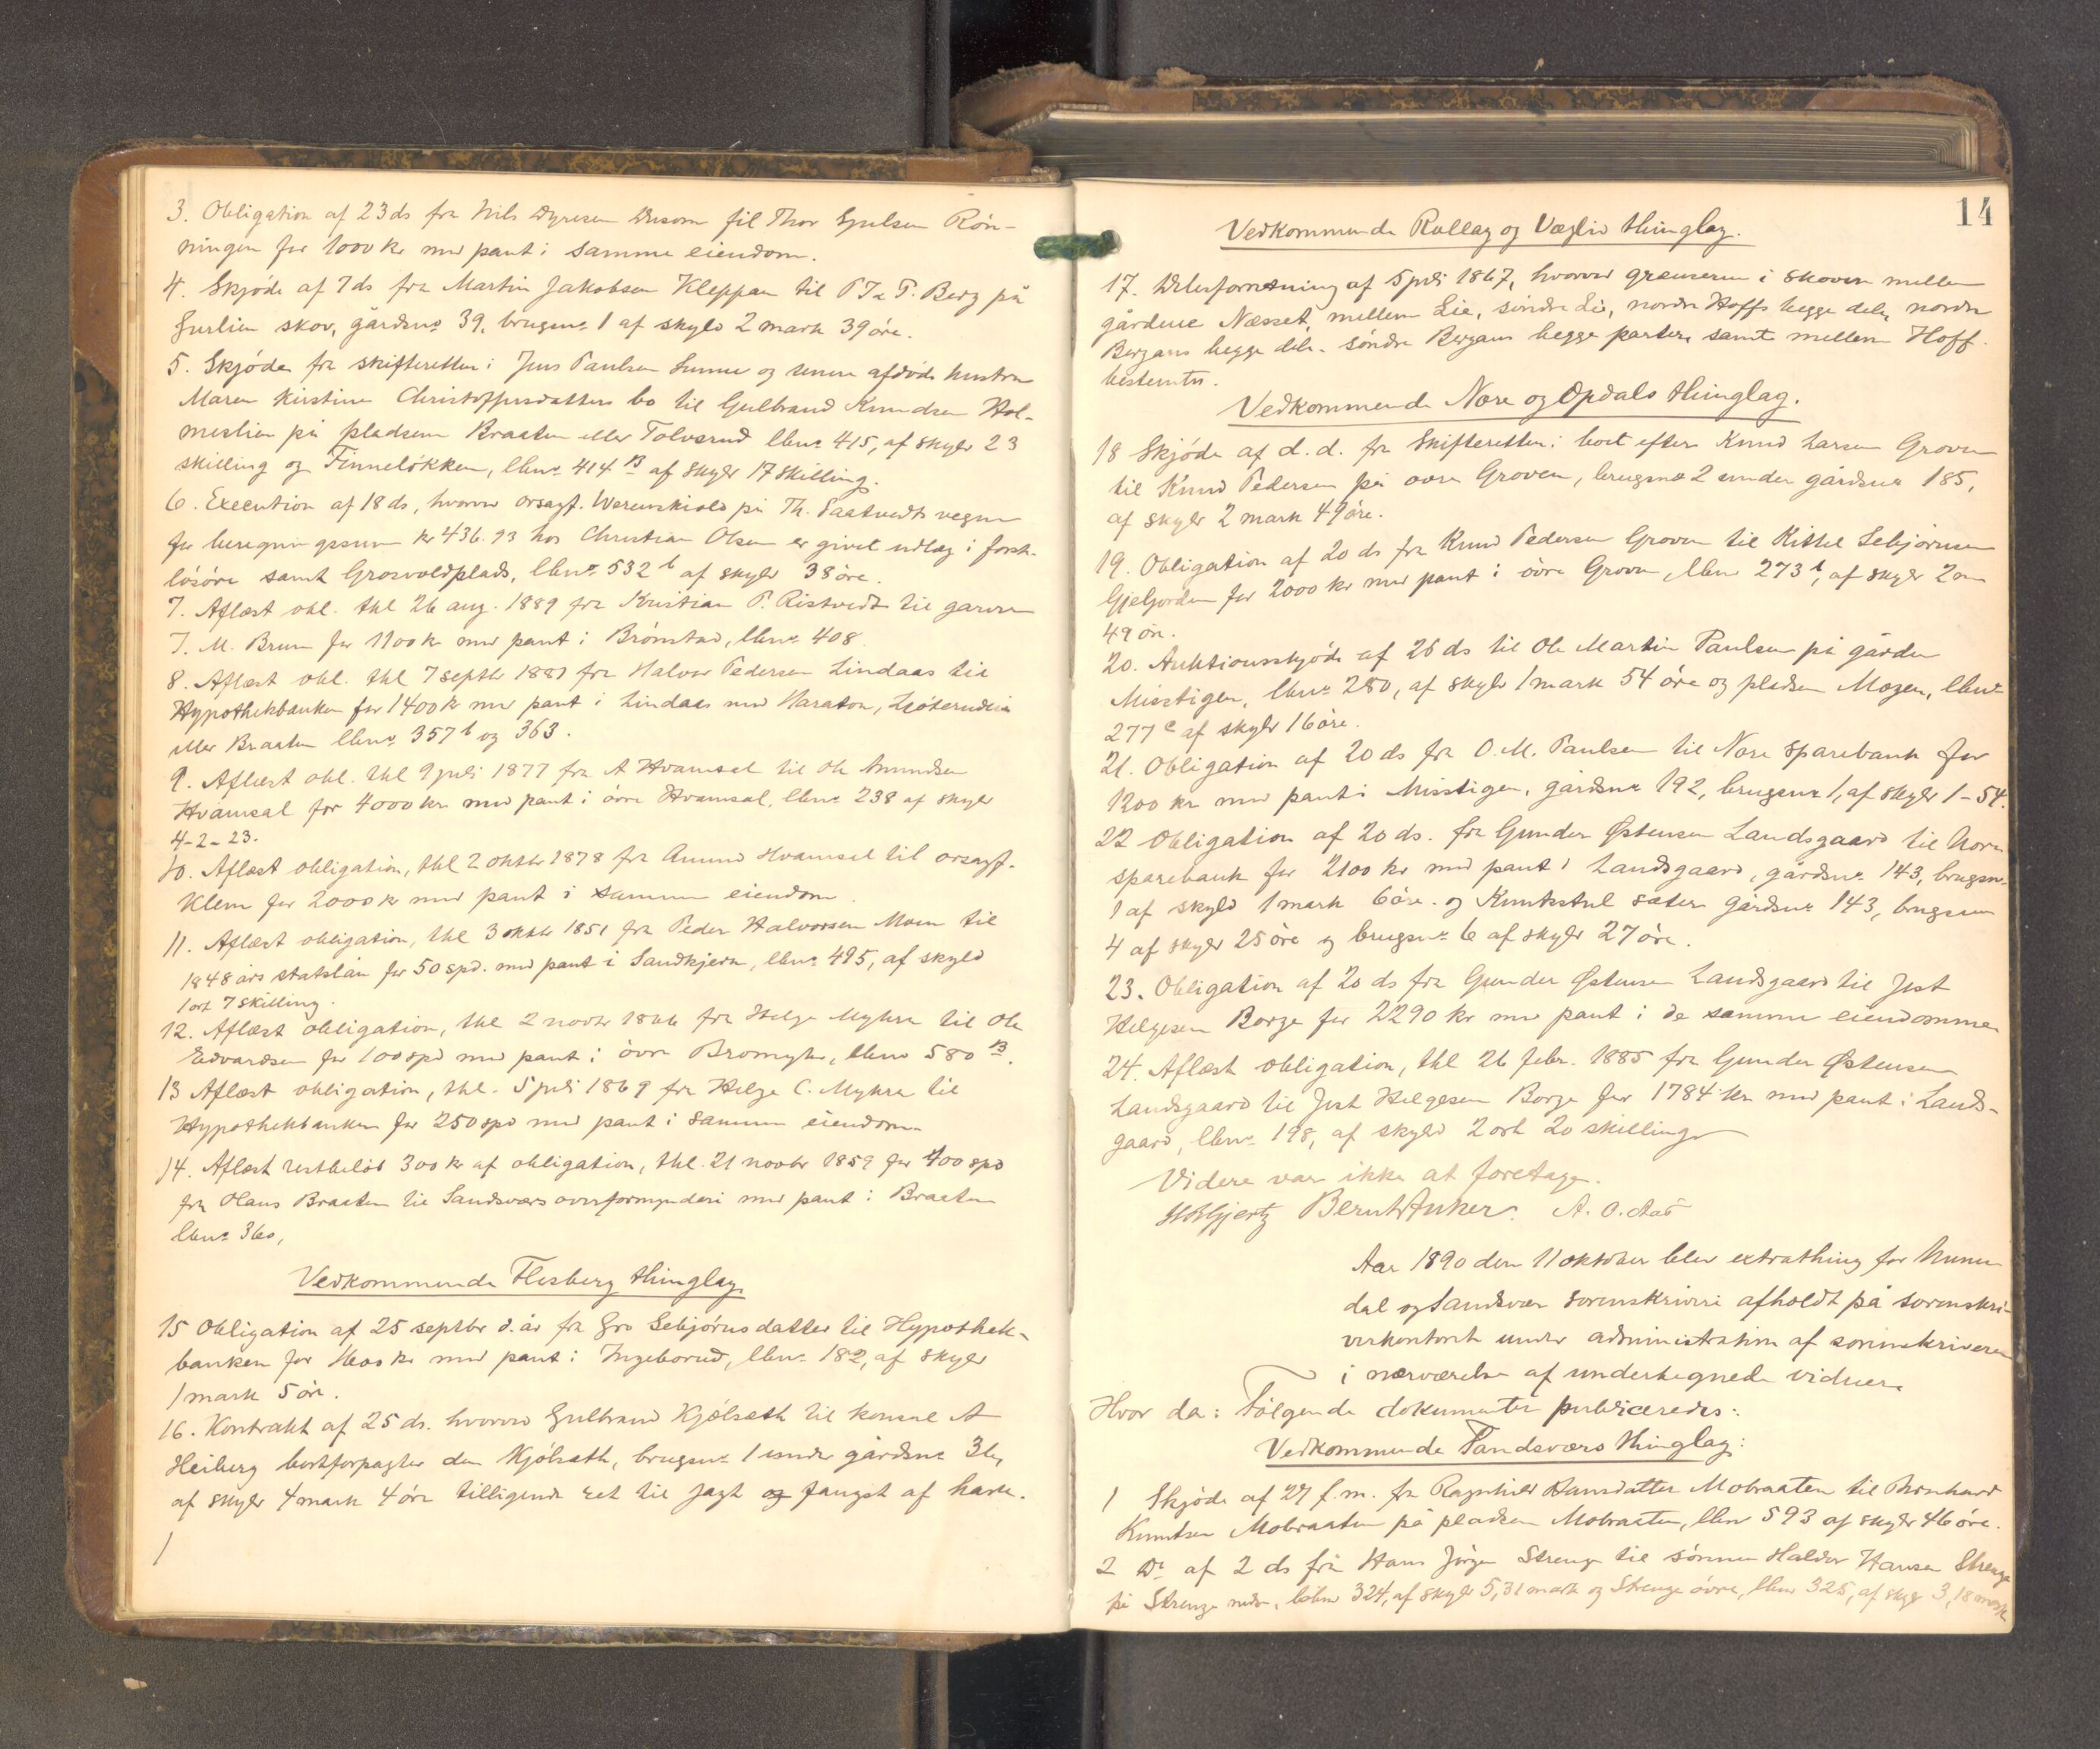 3. Obligation af 23 ds fra Nils Dyresen til Thor Rön-
ningen for 1000 kr med pant i samme eiendom.
4. Skjöde af 7 ds fra Martin Jakobsen Kleppan til P. Berg på
skov, gårdsnr 39, brugsnr 1 af skyld 2 mark 39 öre.
5. Skjöde fra skifteretten i Jens Paulsen og afdöde hustru
Maren Kirstine Christoffersdatters bo til Gulbrand Knudsen Hol-
meslien på pladsene Braaten eller Tolverud lbnr 415, af skyld 23
skilling og Finnelökken, lbnr 414 B af skyld 17 skilling.
6. Execution af 18 ds, hvorved orsagf. Werenskiold på Th. Saatvedts vegne
for beregningssum kr 436.93 hos Christian Olsen er givet udlæg i forsk.
lösöre samt Grosvoldplads, lbnr 532 b af skyld 38 öre.
7. Aflæst obl. thl 26 aug. 1889 fra Kristian P. Ristvedt til garver
J. M. Bruun for 1100 kr med pant i Brönstad, lbnr 408.
8. Aflæst obl. thl 7 septbr 1887 fra Halvor Pedersen Lindaas til
Hypothekbanken for 1400 kr med pant i Lindaas med Haraton,
eller Braaten lbnr 357 b og 363.
9. Aflæst obl. thl 9 juli 1877 fra A Hvamsal til Ole Amundsen
Hvamsal for 4000 kr med pant i övre Hvamsal, lbnr 238 af skyld
4-2-23.
10. Aflæst obligation, thl 2 oktbr 1878 fra Amund Hvamsal til orsagf.
Klem for 2000 kr med pant i samme eiendom.
11. Aflæst obligation, thl 3 oktbr 1851 fra Peder Halvorsen Moen til
1848 års statslån for 50 spd. med pant i Sandkjern, lbnr 495, af skyld
1 ort 7 skilling.
12. Aflæst obligation, thl 2 novbr 1866 fra Helge Myhra til Ole
Edvardsen for 100 spd med pant i övre Bromyhr, lbnr 580 B.
13 Aflæst obligation, thl. 5 juli 1869 fra Helge C. Myhra til
Hypothekbanken for 250 spd med pant i samme eiendom
14. Aflæst restbelöb 300 kr af obligation, thl. 21 novbr 1859 for 400 spd
fra Hans Braaten til Sandsværs overformynderi med pant i Braaten
lbnr 360,
Vedkommende Flesberg thinglag.
15 Obligation af 25 septbr d. år fra Gro Sebjörnsdatter til Hypothek-
banken for kr med pant i Ingeborud, lbnr 182, af skyld
1 mark 5 öre.
16. Kontrakt af 25 ds. hvorved Gulbrand Kjölseth til konsul A
Heiberg bortforpagter den Kjölseth, brugsnr 1 under gårdsnr 36,
af skyld 4 mark 4 öre tilligende ret til jagt og fangst af harer.
14
Vedkommende Rollag og Væglid thinglag.
17. Delesforretning af 5 juli 1867, hvorved grænserne i skoven mellem
gårdene Næsset, mellem Lie, söndre Lie, nordre Hoffs begge dele, nordre
Bergans begge dele, söndre Bergans begge parter, samt mellem Hoff
bestemtes.
Vedkommende Nore og Opdals thinglag.
18 Skjöde af d. d. fra Skifteretten i boet efter Knud Larsen Groven
til Knud Pedersen på övre Groven, brugsnr 2 under gårdsnr 185,
af skyld 2 mark 49 öre.
19. Obligation af 20 ds fra Knud Pedersen Groven til Kittel Sebjörnsen
Gjeljorden for 2000 kr med pant i övre Groven, lbnr 273 b, af skyld 2 m
49 öre.
20. Auktionsskjöde af 26 ds til Ole Martin Paulsen på gården
Misstigen, lbnr 280, af skyld 1 mark 54 öre og pladsen Mogen, lbnr
277 c af skyld 16 öre.
21. Obligation af 20 ds fra O. M. Paulsen til Nore sparebank for
1200 kr med pant i Misstigen, gårdsnr 192, brugsnr 1, af skyld 1-54.
22 Obligation af 20 ds. fra Gunder Østensen Landsgaard til Nore
sparebank for 2100 kr med pant i Landsgaard, gårdsnr 143, brugsnr
1 af skyld 1 mark 6 öre og sæter gårdsnr 143, brugsnr
4 af skyld 25 öre og brugsnr 6 af skyld 27 öre.
23. Obligation af 20 ds fra Gunder Østensen Landsgaard til Jost
Helgesen Borge for 2290 kr med pant i de samme eiendomme
24. Aflæst obligation, thl 26 febr. 1885 fra Gunder Østensen
Landsgaard til Jost Helgesen Borge for 1784 kr med pant i Lands-
gaard, lbnr 198, af skyld 2 ort 20 skilling
Videre var ikke at foretage.
Hjertz Bernt Anker. A. O. Aas
Aar 1890 den 11 oktober blev extrathing for Numme
dal og Sandsvær sorenskriveri afholdt på sorenskri-
verkontoret under administration af sorenskriveren
i nærværelse af undertegnede vidner.
Hvor da: Følgende dokumenter publiceredes:
Vedkommende Sandsværs thinglag:
1 Skjöde af 27 f. m. fra Ragnhild Hansdatter Mobraaten til
Knutsen Mobraaten på pladsen Mobraaten, lbnr 593 af skyld 46 öre.
2 Do af 2 ds fra Hans Jörgen Strenge til sönnen Haldor Hansen Strenge
på Strenge nedre, lbnr 324, af skyld 5,31 mark og Strenge övre, lbnr 325, af skyld 3,18 mark